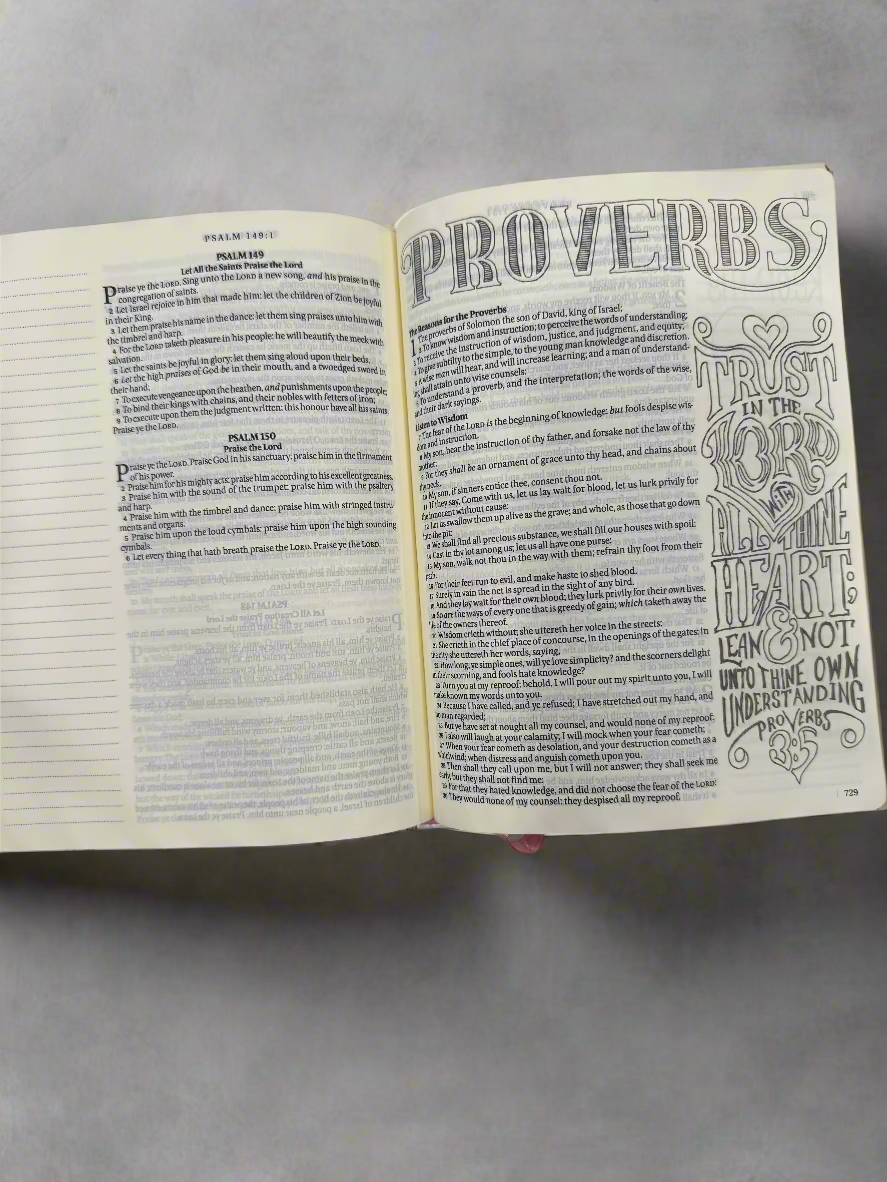 PSALM 149:1
PSALM 149
Let All the Saints Praise the Lord
Praise ye the LORD. Sing unto the LORD a new song, and his praise in the
congregation of saints.
2 Let Israel rejoice in him that made him: let the children of Zion be joyful
in their King.
3 Let them praise his name in the dance: let them sing praises unto him with
the timbrel and harp.
4 For the LORD taketh pleasure in his people: he will beautify the meek with
salvation.
5 Let the saints be joyful in glory: let them sing aloud upon their beds.
6 Let the high praises of God be in their mouth, and a twoedged sword in
their hand;
7 To execute vengeance upon the heathen, and punishments upon the people;
8 To bind their kings with chains, and their nobles with fetters of iron;
9 To execute upon them the judgment written: this honour have all his saints.
Praise ye the LORD.
PSALM 150
Praise the Lord
Praise ye the LORD. Praise God in his sanctuary: praise him in the firmament
of his power.
2 Praise him for his mighty acts: praise him according to his excellent greatness.
3 Praise him with the sound of the trumpet: praise him with the psaltery
and harp.
4 Praise him with the timbrel and dance: praise him with stringed instru-
ments and organs.
5 Praise him upon the loud cymbals: praise him upon the high sounding
cymbals.
6 Let every thing that hath breath praise the LORD. Praise ye the LORD.
PROVERBS
The Reasons for the Proverbs
1 The proverbs of Solomon the son of David, king of Israel;
2 To know wisdom and instruction; to perceive the words of understanding;
3 To receive the instruction of wisdom, justice, and judgment, and equity;
4 To give subtilty to the simple, to the young man knowledge and discretion.
5 A wise man will hear, and will increase learning; and a man of understand-
ing shall attain unto wise counsels:
6 To understand a proverb, and the interpretation; the words of the wise,
and their dark sayings.
Listen to Wisdom
7 The fear of the LORD is the beginning of knowledge: but fools despise wis-
dom and instruction.
8 My son, hear the instruction of thy father, and forsake not the law of thy
mother:
9 For they shall be an ornament of grace unto thy head, and chains about
thy neck.
10 My son, if sinners entice thee, consent thou not.
11 If they say, Come with us, let us lay wait for blood, let us lurk privily for
the innocent without cause:
12 Let us swallow them up alive as the grave; and whole, as those that go down
into the pit:
13 We shall find all precious substance, we shall fill our houses with spoil:
14 Cast in thy lot among us; let us all have one purse:
15 My son, walk not thou in the way with them; refrain thy foot from their
path:
16 For their feet run to evil, and make haste to shed blood.
17 Surely in vain the net is spread in the sight of any bird.
18 And they lay wait for their own blood; they lurk privily for their own lives.
19 So are the ways of every one that is greedy of gain; which taketh away the
life of the owners thereof.
20 Wisdom crieth without; she uttereth her voice in the streets:
21 She crieth in the chief place of concourse, in the openings of the gates: in
the city she uttereth her words, saying,
22 How long, ye simple ones, will ye love simplicity? and the scorners delight
in their scorning, and fools hate knowledge?
23 Turn you at my reproof: behold, I will pour out my spirit unto you, I will
make known my words unto you.
24 Because I have called, and ye refused; I have stretched out my hand, and
no man regarded;
25 But ye have set at nought all my counsel, and would none of my reproof:
26 I also will laugh at your calamity; I will mock when your fear cometh;
27 When your fear cometh as desolation, and your destruction cometh as a
whirlwind; when distress and anguish cometh upon you.
28 Then shall they call upon me, but I will not answer; they shall seek me
early, but they shall not find me:
29 For that they hated knowledge, and did not choose the fear of the LORD:
30 They would none of my counsel: they despised all my reproof.
TRUST
IN THE
LORD
WITH
ALL THINE
HEART;
& LEAN NOT
UNTO THINE OWN
UNDERSTANDING
PROVERBS
3:5
729